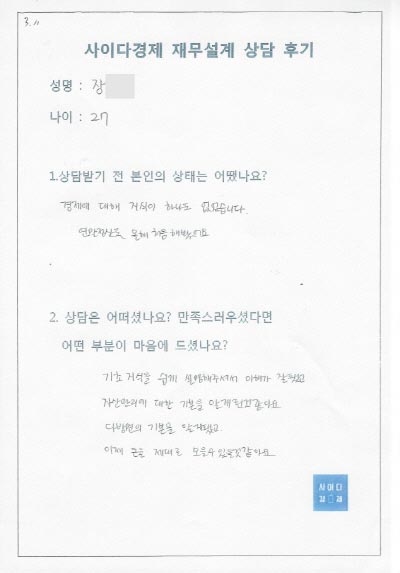 3. 11
사이다경제 재무설계 상담 후기
성명 : 장
나이 : 27
1.상담받기 전 본인의 상태는 어땠나요?
경제에 대해 지식이 하나도 없었습니다.
연말정산도 올해 처음 해봤구요
2. 상담은 어떠셨나요? 만족스러우셨다면
어떤 부분이 마음에 드셨나요?
기초 지식을 쉽게 설명해주셔서 이해가 잘됐고
자산관리에 대한 기본을 알게된것같아요
다방면의 기본을 알게됐고
이제 돈을 제대로 모을수 있을것같아요
사이다
경제